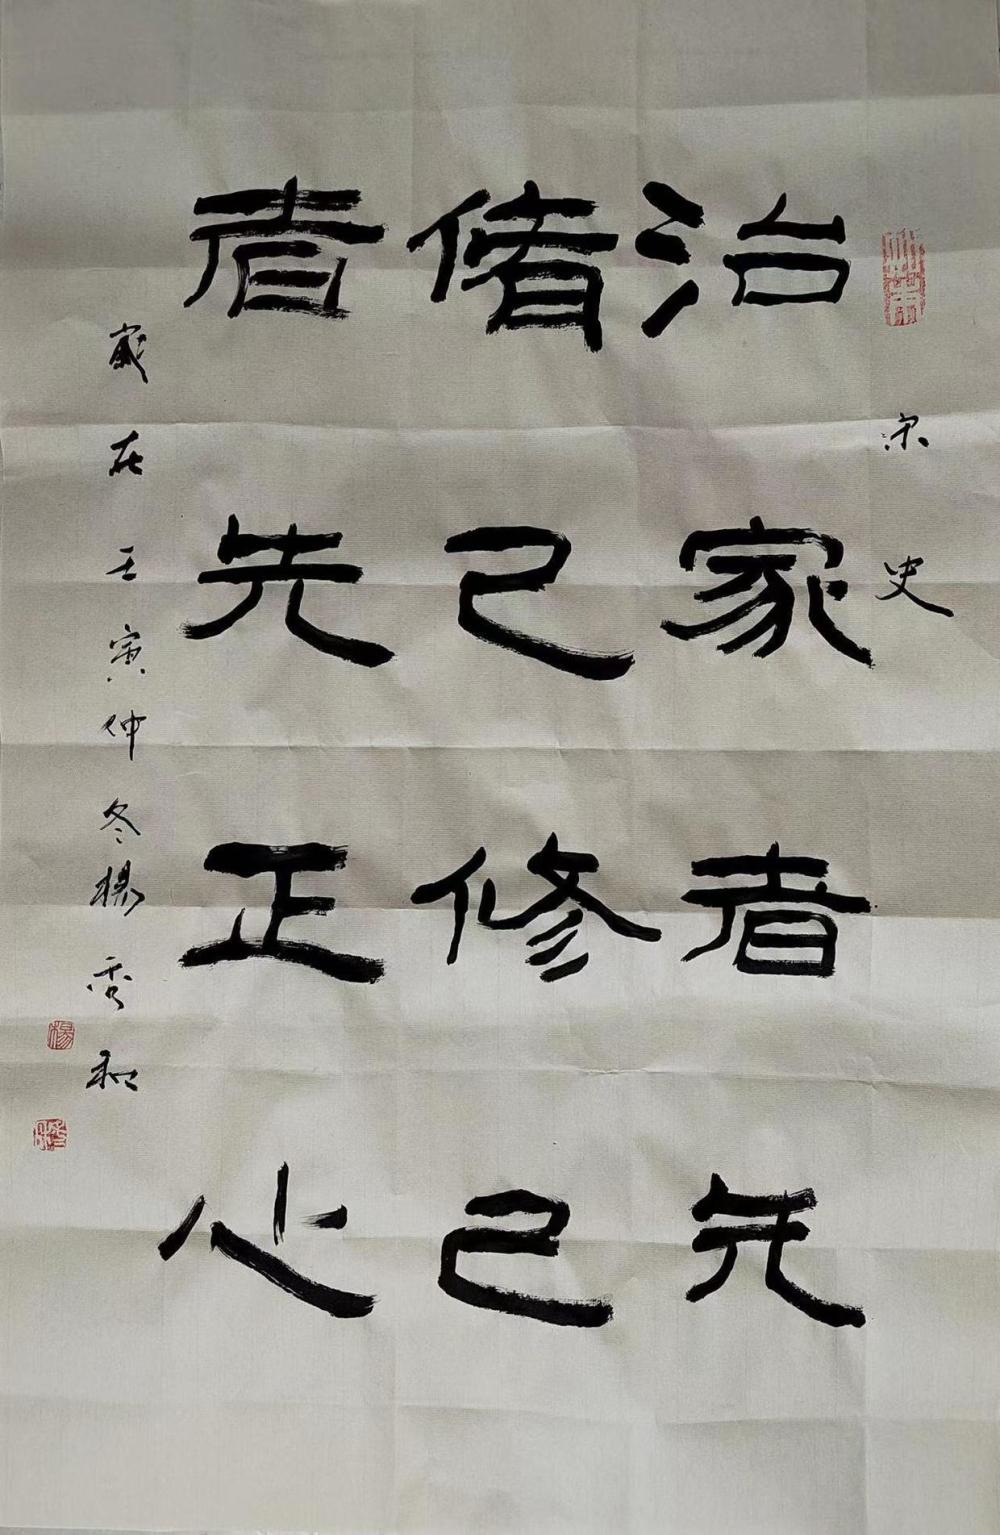 宋史
治家者先
脩己修己
者先正心
歲在壬寅仲冬楊秀和
楊